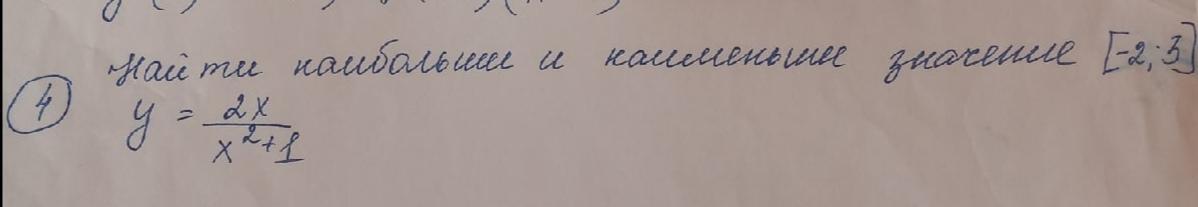 Найти наибольши и наименьши значение [-2; 3]
④ y = 2x / x²+1